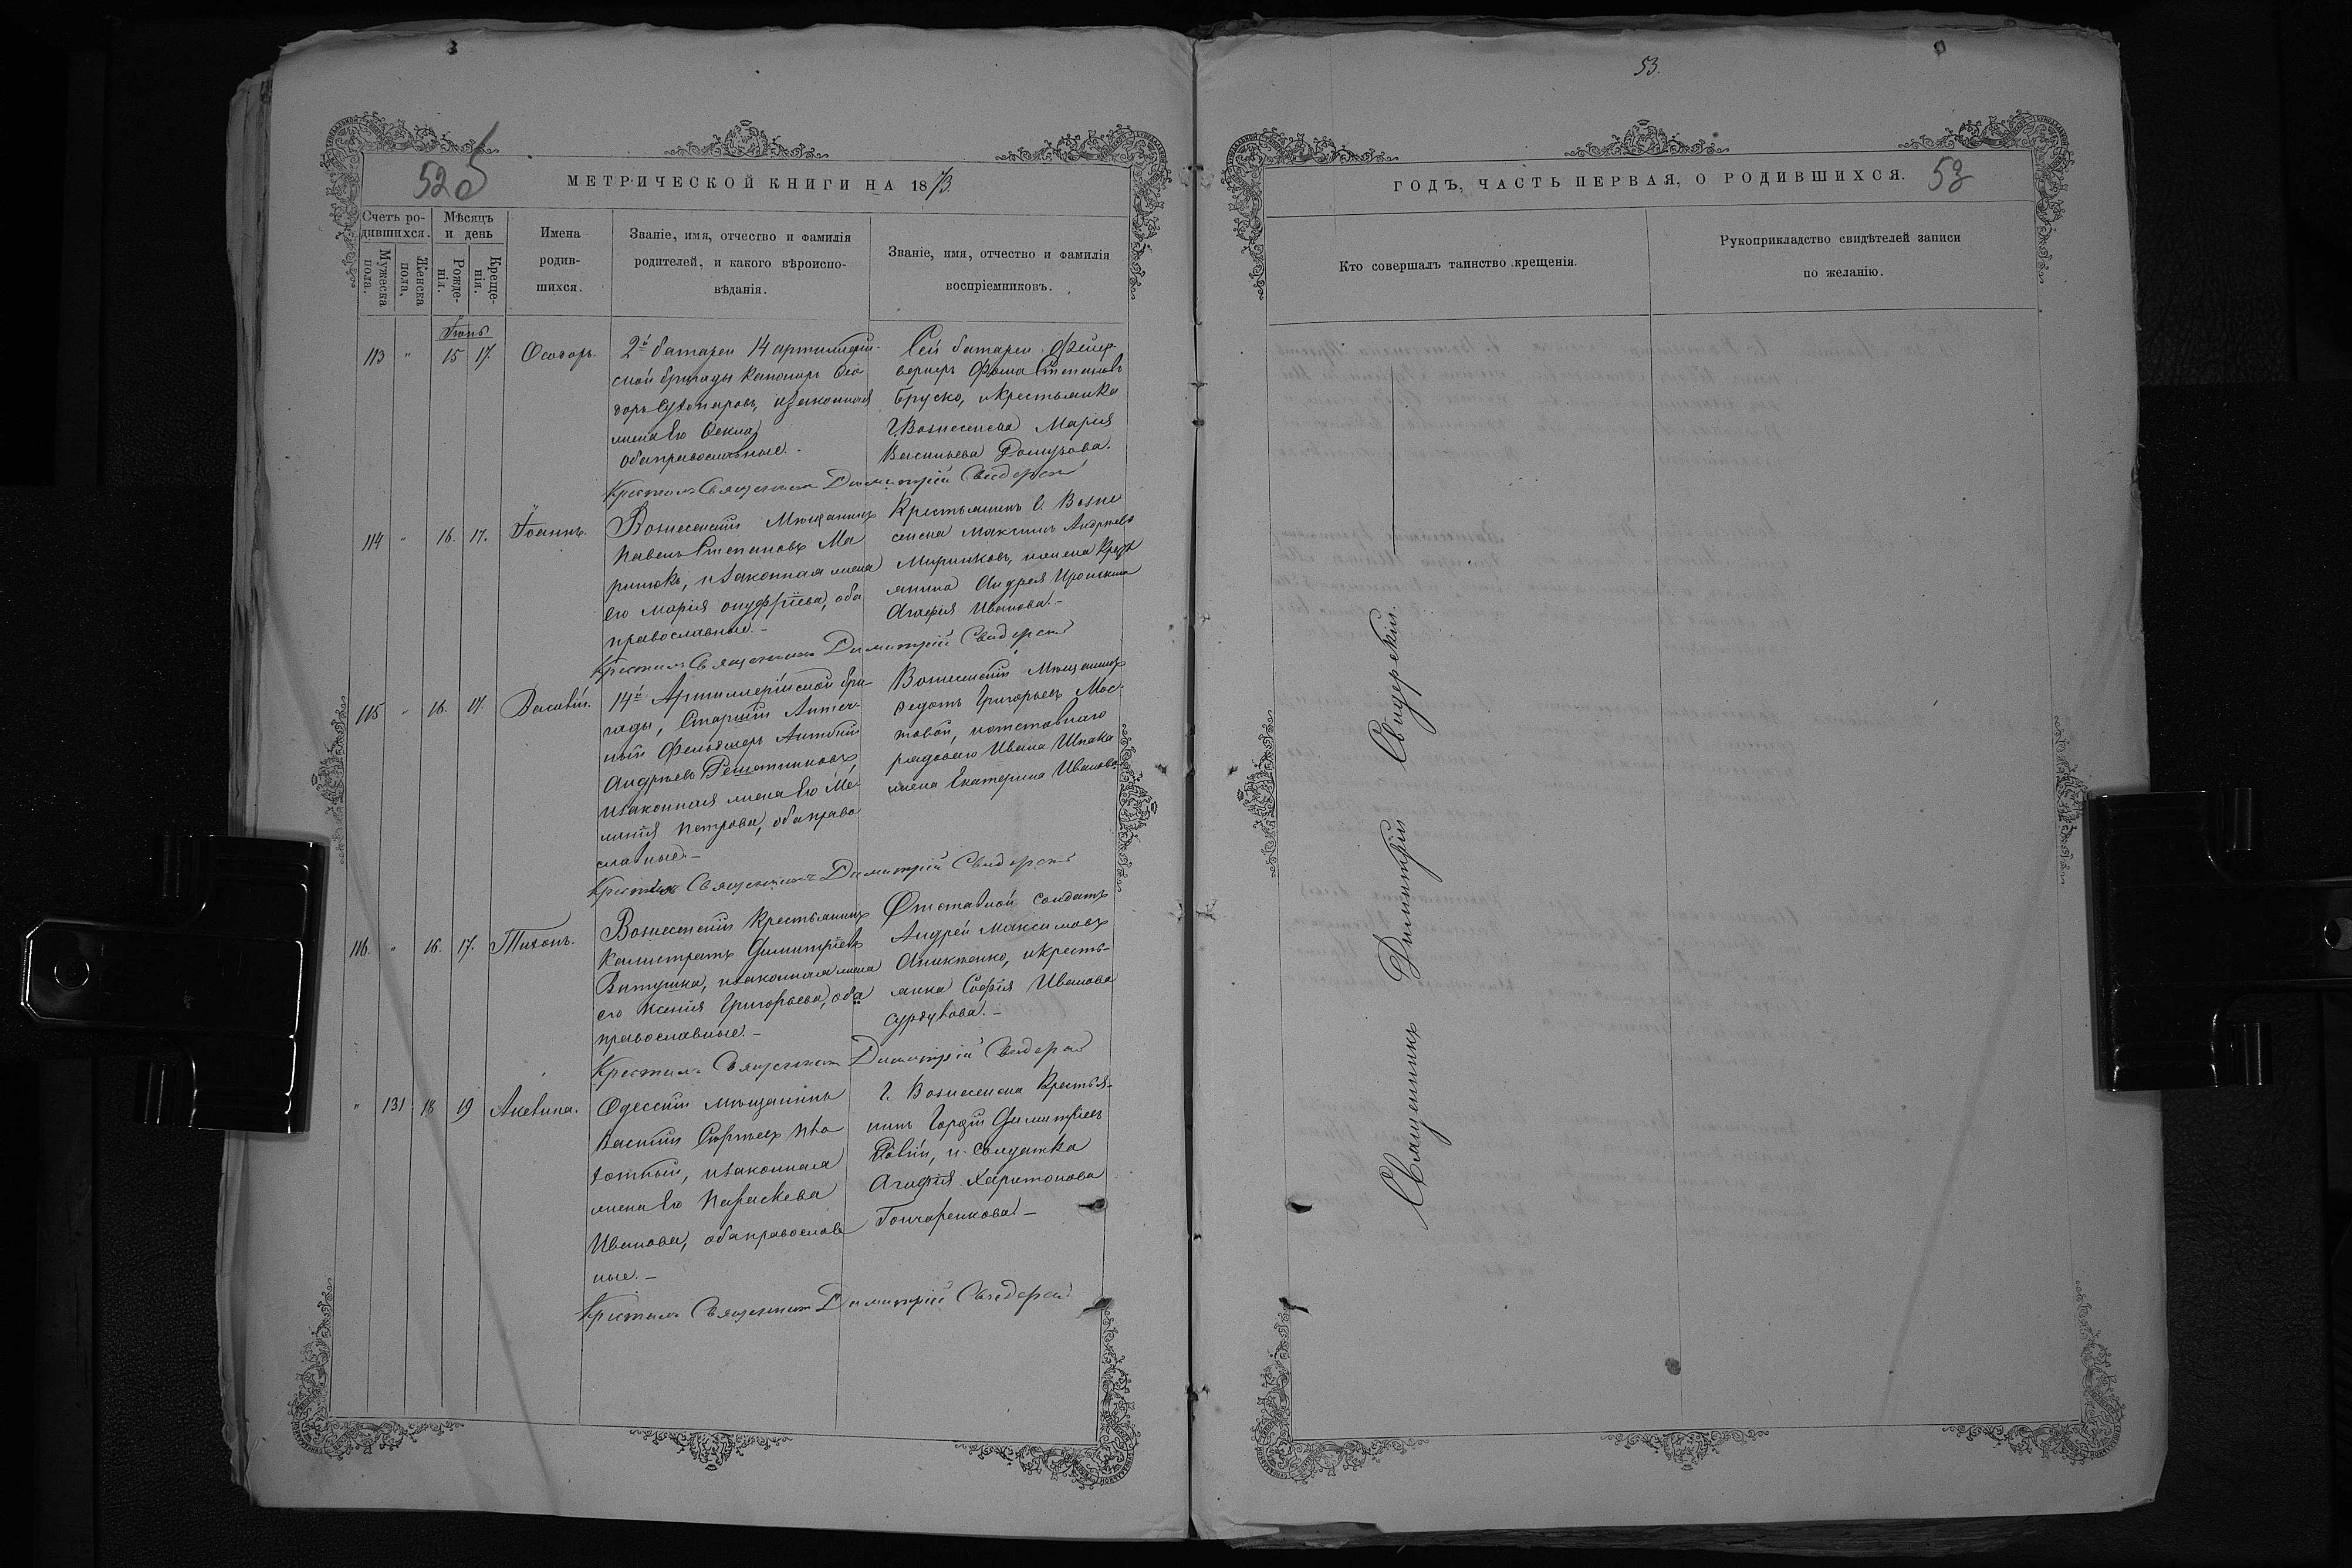 52б
МЕТРИЧЕСКОЙ КНИГИ НА 1873.
Счетъ ро-
дившихся.
Мужеска
пола.
Женска
пола.
Мѣсяцъ
и день
Рожде-
нія.
Креще-
нія.
Имена
родив-
шихся.
Званіе, имя, отчество и фамилія
родителей, и какого вѣроиспо-
вѣданія.
Званіе, имя, отчество и фамилія
воспріемниковъ.
Іюнь
113 " 15 17. Ѳеодоръ.
2й батареи 14 артиллерій-
ской бригады Канониръ Ѳео
доръ Сухопаровъ, изаконная
жена его Ѳекла,
обаправославные.
Сей батареи Фейер-
веркеръ Фома Степановъ
Бруско, икрестьянка
Г. Вознесенска Марія
Васильева
Крестилъ Священникъ Димитрій Свидерскій
114 " 16. 17. Іоаннъ.
Вознесенскій Мѣщанинъ
Павелъ Степановъ Ма
ринюкъ, изаконная жена
его Марія онуфріева, оба
православные. -
Крестьянинъ Г. Возне
сенска Максимъ Андреевъ
Миринковъ, ижена Крест
янина Андрея
Агафія Иванова. -
Крестилъ Священникъ Димитрій Свидерскій
115 " 16. 17. Василій.
14й Артиллерійской бри
гады, Старшій Аптеч-
ный Фельдшеръ Антоній
Андреевъ Решетниковъ,
изаконная жена его Ме
ланія Петрова, обаправо
славные. -
Вознесенскій Мѣщанинъ
Ѳедотъ Григорьевъ Мос-
товой, иотставнаго
рядоваго Ивана Шпака
жена Екатерина Иванова
Крестилъ Священникъ Димитрій Свидерскій
116. " 16. 17. Тихонъ.
Вознесенскій Крестьянинъ
Калистратъ Димитріевъ
Витушка, изаконная жена
его Ксенія Григорьева, оба
православные. -
Отставной солдатъ
Андрей Максимовъ
Аникѣенко, икресть-
янка Софія Иванова
Сурдукова. -
Крестилъ Священникъ Димитрій Свидерскій
" 131 18 19 Акелина.
Одесскій мѣщанинъ
Василій Сергѣевъ
изаконная
жена его Параскева
Иванова, обаправослав
ные. -
Г. Вознесенска Крестья-
нинъ Гордій Димитріевъ
и Солдатка
Агафія Харитонова
Гончаренкова. -
Крестилъ Священникъ Димитрій Свидерскій
53.
ГОДЪ, ЧАСТЬ ПЕРВАЯ, О РОДИВШИХСЯ.
53
Кто совершалъ таинство крещенія.
Рукоприкладство свидѣтелей записи
по желанію.
Священникъ Димитрій Свидерскій.